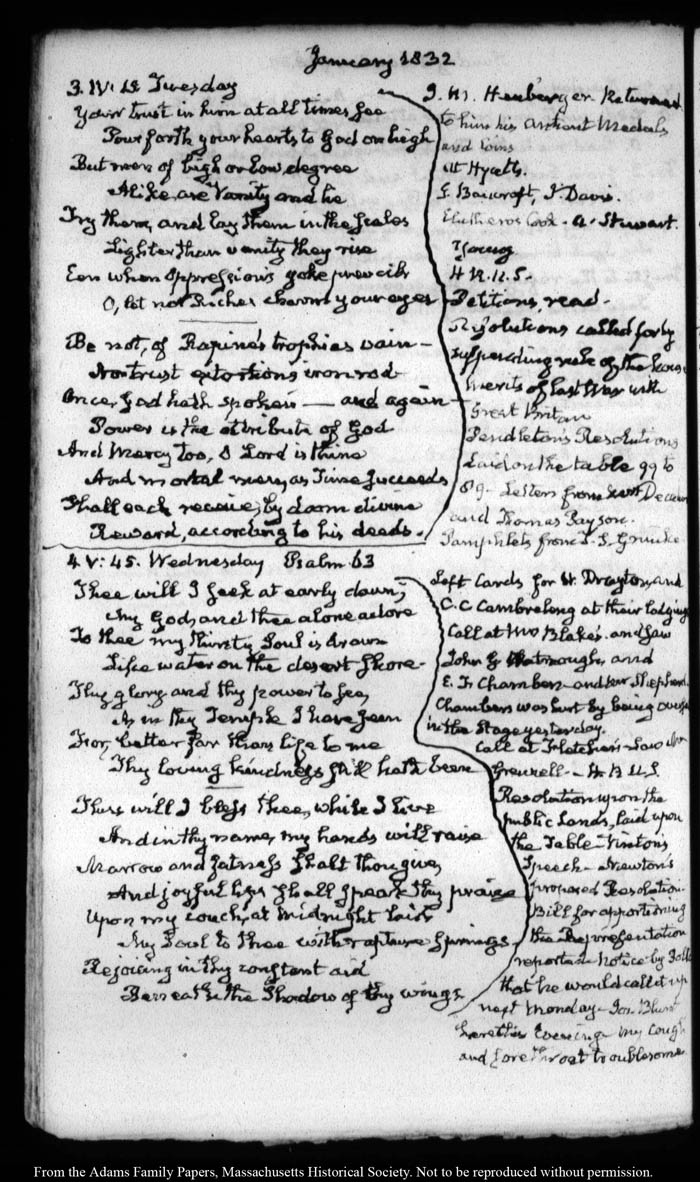 January 1832
3. IV: 15. Tuesday
Your trust in him at all times see
Pour forth your hearts to God on high
But men of high or low degree
Alike are Vanity and lie
Try them, and lay them in the scales
Lighter than vanity they rise
Een when Oppression's yoke prevails
O, let not Riches charm your eyes
Be not, of Rapine's trophies vain—
Nor trust extortions iron rod
Once, God hath spoken — and again—
Power is the attribute of God
And Mercy too, O Lord is thine
And mortal men, as Time succeeds
Shall each receive, by doom divine
Reward, according to his deeds.
J. M. Returned
to him his Ancient Medals
and coins
At Hyatt's.
G. Bancroft, J. Davis.
A. Stewart.
Young
H.R.U.S.
Petitions read.
Resolutions called for by
suspending rule of the House
Merits of last War with
Great Britain
Pendleton's Resolutions
Laid on the table 99 to
89. Letters from
and Thomas Payson.
Pamphlets from T. S. Grimke
4. V: 45. Wednesday Psalm 63
Thee will I seek at early dawn,
My God, and thee alone adore
To thee my thirsty Soul is drawn
Like water on the desert shore.
Thy glory and thy power to see,
As in thy Temple I have seen
For, better far than life to me
Thy loving kindness still hath been
Thus will I bless thee, while I live
And in thy name, my hands will raise
Marrow and fatness shalt thou give,
And joyful lips shall speak thy praise
Upon my couch, at midnight laid
My Soul to thee with rapture springs.
Rejoicing in thy constant aid
Beneath the shadow of thy wings.
Left Cards for W. Drayton, and
C. C. Cambreleng at their lodging
Call at Mrs Blake's. and saw
John G. and
E. F. Chambers and
Chambers was hurt by being overset
in the Stage yesterday.
Call at Fletcher's. Saw Mr
Grennell. H.R.U.S.
Resolution upon the
public Lands, laid upon
the Table. Vinton's
Speech. Newton's
proposed Resolution.
Bill for apportioning
the Representation
reported. Notice by Polk
that he would call it up
next Monday. Jos. Blunt
here this Evening. My Cough
and sore throat troublesome
From the Adams Family Papers, Massachusetts Historical Society. Not to be reproduced without permission.